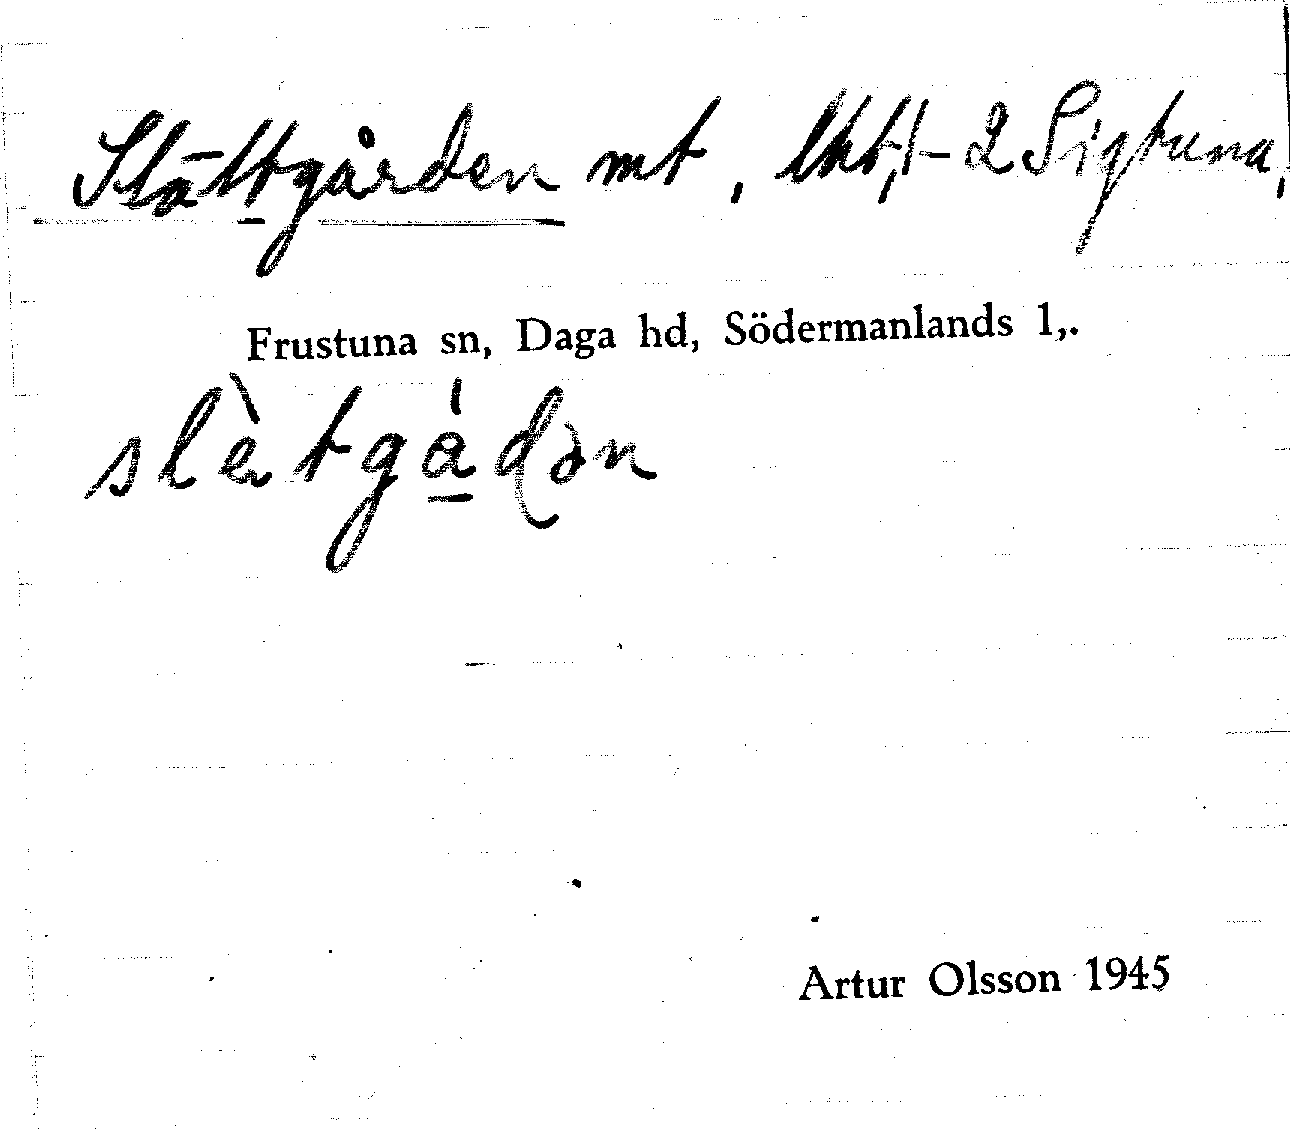 Slättgården mt, lht, 1-2 Sigtuna,
Frustuna sn, Daga hd, Södermanlands l,.
slètgådən
Artur Olsson 1945